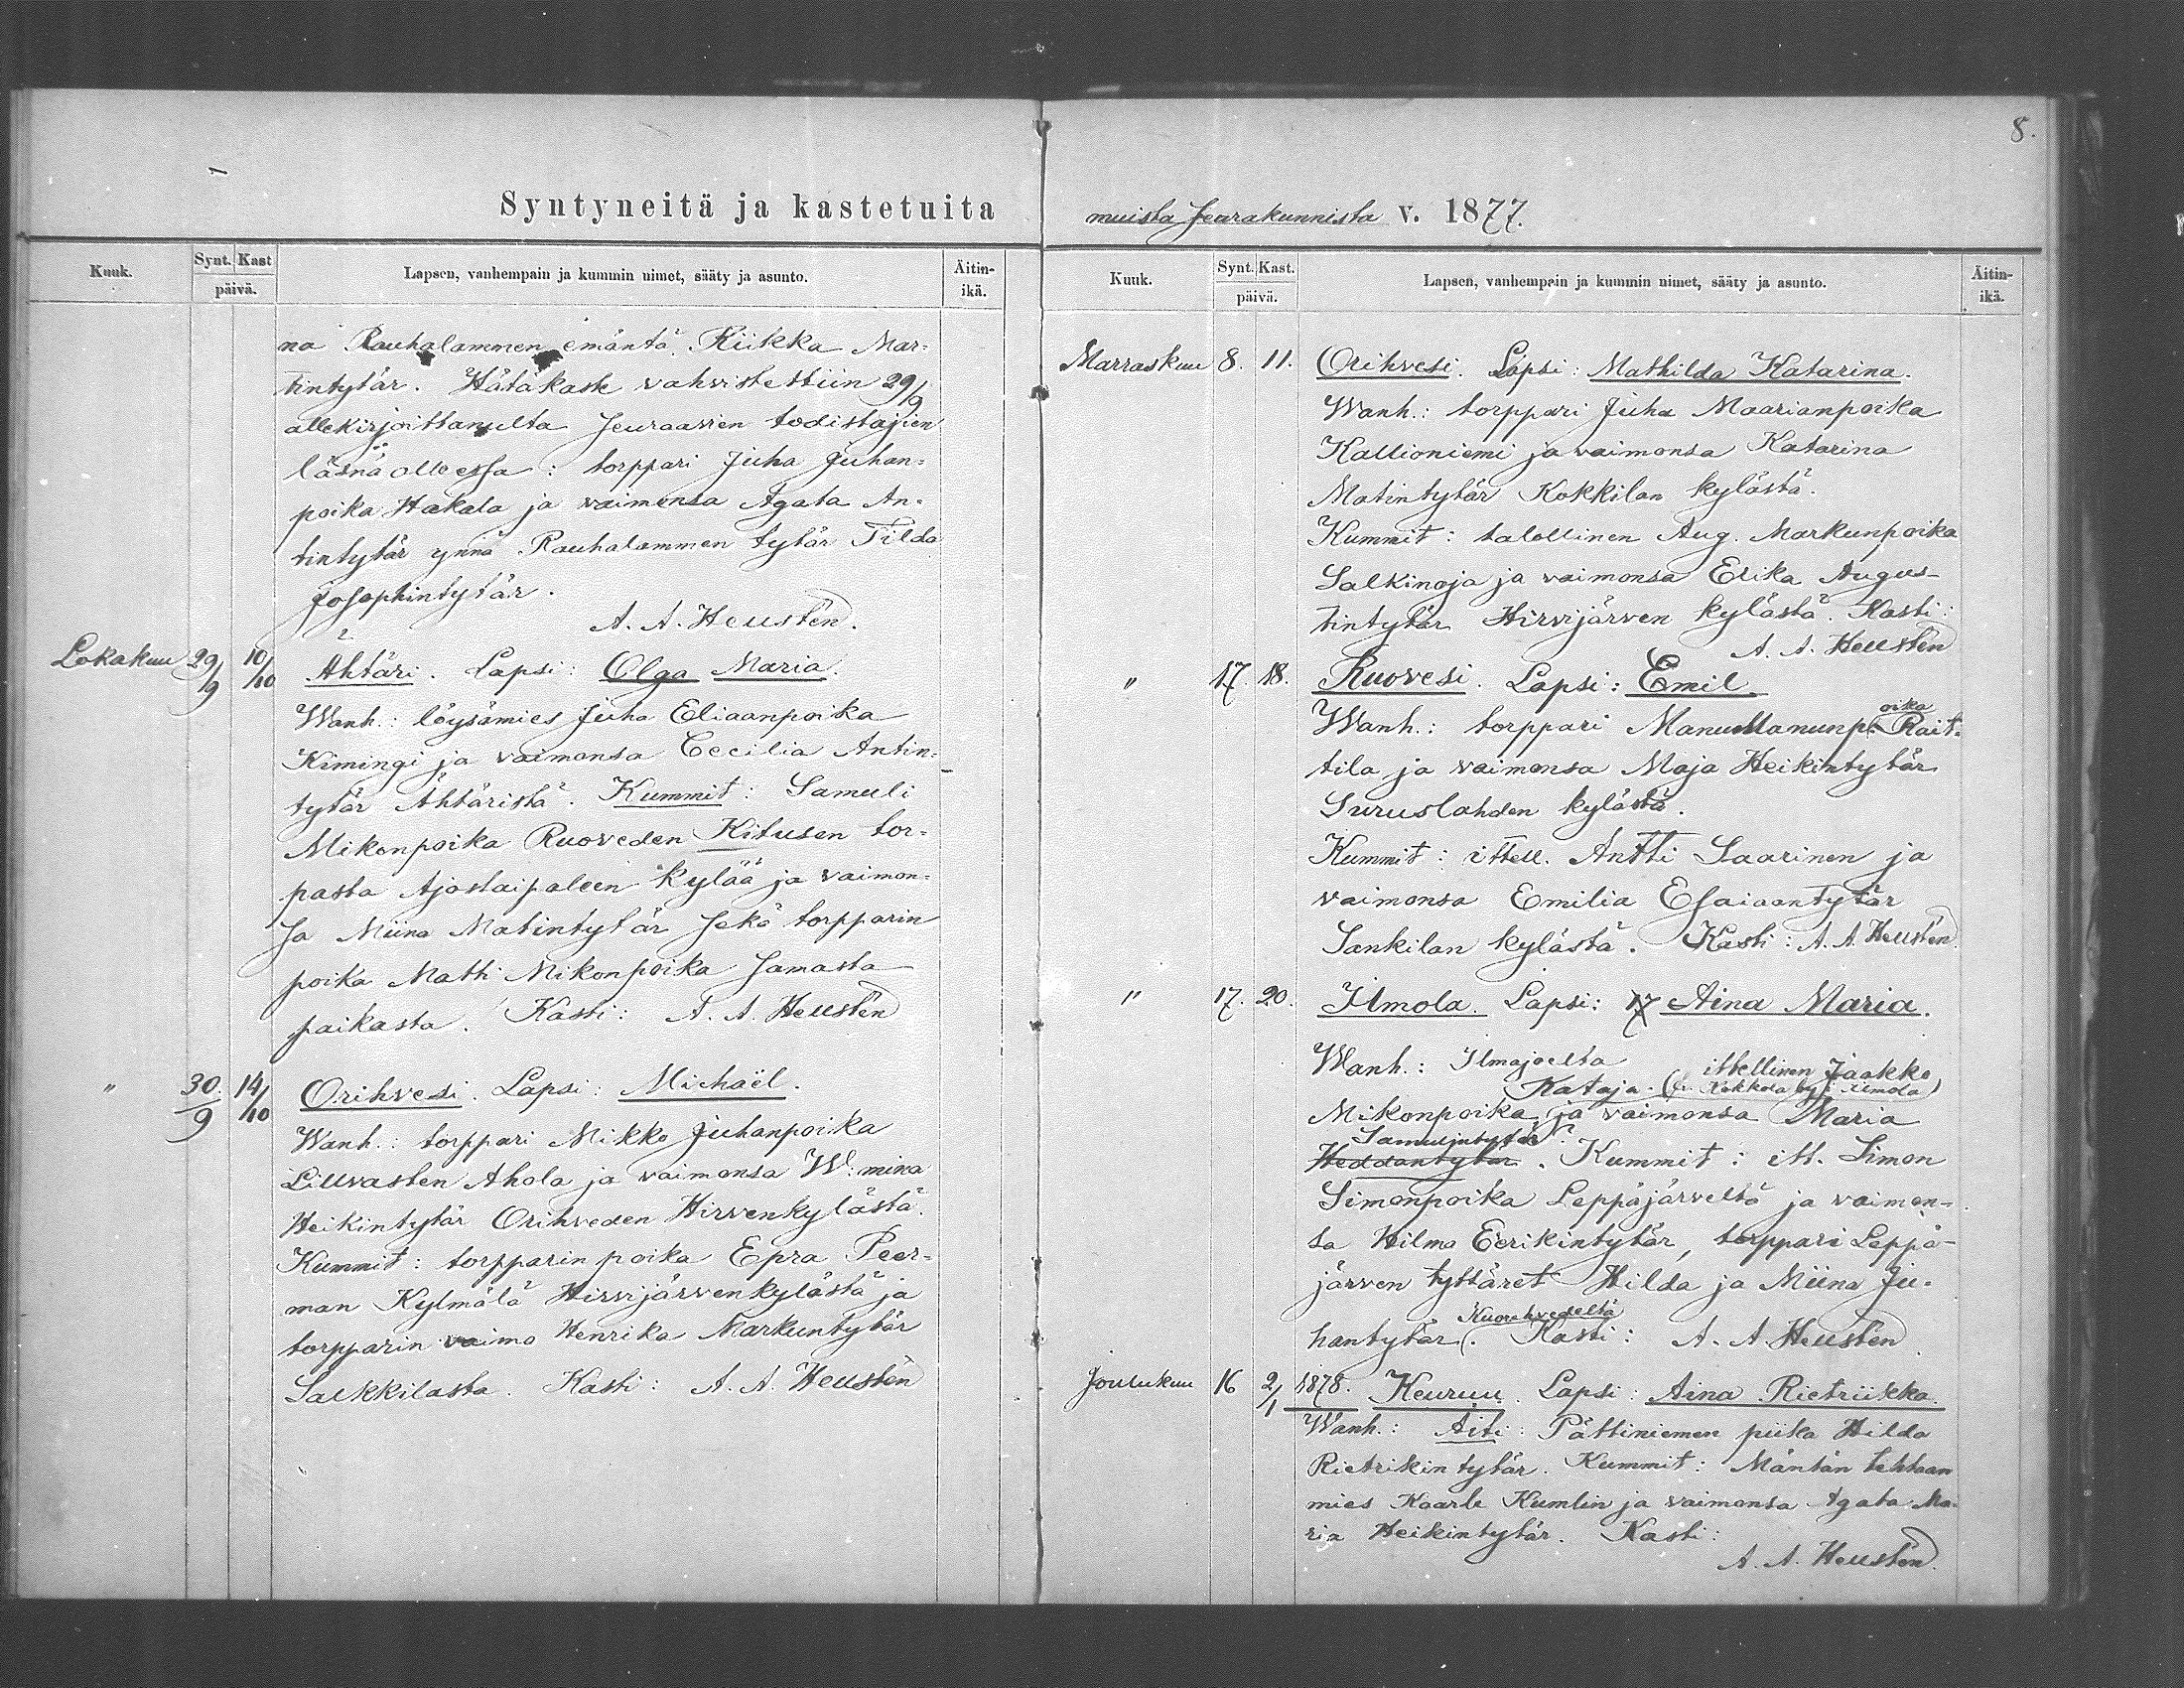 8.
Syntyneitä ja kastetuita
muista seurakunnista v. 1877.
Kuuk.
Synt. Kast
päivä.
Lapsen, vanhempain ja kummin nimet, sääty ja asunto.
Äitin-
ikä.
na Rauhalammen emäntä Riikka Mar-
tintytär. Hätäkaste vahvistettiin 29/9
allekirjoittanulta seuraavien todistajien
läsnä ollessa: torppari Juha Juhan-
poika Hakala ja vaimonsa Agata An-
tintytär ynnä Rauhalammen tytär Tilda
Josephintytär.
A. A. Heusten.
Lokakuu 29/9 10/10 Ähtäri. Lapsi: Olga Maria.
Wanh.: löysämies Juha Eliaanpoika
Kimingi ja vaimonsa Cecilia Antin-
tytär Ähtäristä. Kummit: Samuli
Mikonpoika Ruoveden Kitusen tor-
pasta Ajostaipaleen kylää ja vaimon-
sa Miina Matintytär sekä torpparin
poika Matti Mikonpoika samasta
paikasta. Kasti: A. A. Heusten
" 30/9 14/10 Orihvesi. Lapsi: Michaël.
Wanh.: torppari Mikko Juhanpoika
Liuvasten Ahola ja vaimonsa W:mina
Heikintytär Orihveden Hirvenkylästä.
Kummit: torpparin poika Epra Peer-
man Kylmälä Hirvijärvenkylästä ja
torpparin vaimo Henrika Markuntytär
Salkkilasta. Kasti: A. A. Heusten
Kuuk.
Synt. Kast.
päivä.
Lapsen, vanhempain ja kummin nimet, sääty ja asunto.
Äitin-
ikä.
Marraskuu 8. 11. Orihvesi. Lapsi: Mathilda Katarina.
Wanh.: torppari Juha Maarianpoika
Kallioniemi ja vaimonsa Katarina
Matintytär Kokkilan kylästä.
Kummit: talollinen Aug. Markunpoika
Salkinoja ja vaimonsa Erika Augus-
tintytär Hirvijärven kylästä. Kasti:
A. A. Heusten
" 17. 18. Ruovesi. Lapsi: Emil.
oika
Wanh.: torppari Manu Manunp. Rait-
tila ja vaimonsa Maja Heikintytär
Suruslahden kylästä.
Kummit: ittell. Antti Saarinen ja
vaimonsa Emilia Esaiaantytär
Sankilan kylästä. Kasti: A. A. Heusten
" 17. 20. Ilmola. Lapsi: Aina Maria.
Wanh.: Ilmajoelta ittellinen Jaakko
Kataja. Kokkola Ilmola)
Mikonpoika ja vaimonsa Maria
Samuintytär
Heddantytär. Kummit: itt. Simon
Simonpoika Leppäjärveltä ja vaimon-
sa Hilma Eerikintytär, torppari Leppä-
järven tyttäret Hilda ja Miina Ju-
Kuorehvedeltä
hantytär. Kasti: A. A. Heusten
Joulukuu 16 2/1 1878. Keuruu. Lapsi: Aina Rietriikka.
Wanh.: Äiti: Pättiniemen piika Hilda
Rietrikintytär. Kummit: Mäntän tehtaan
mies Kaarle Kumlin ja vaimonsa Agata Ma-
ria Heikintytär. Kasti:
A. A. Heusten.